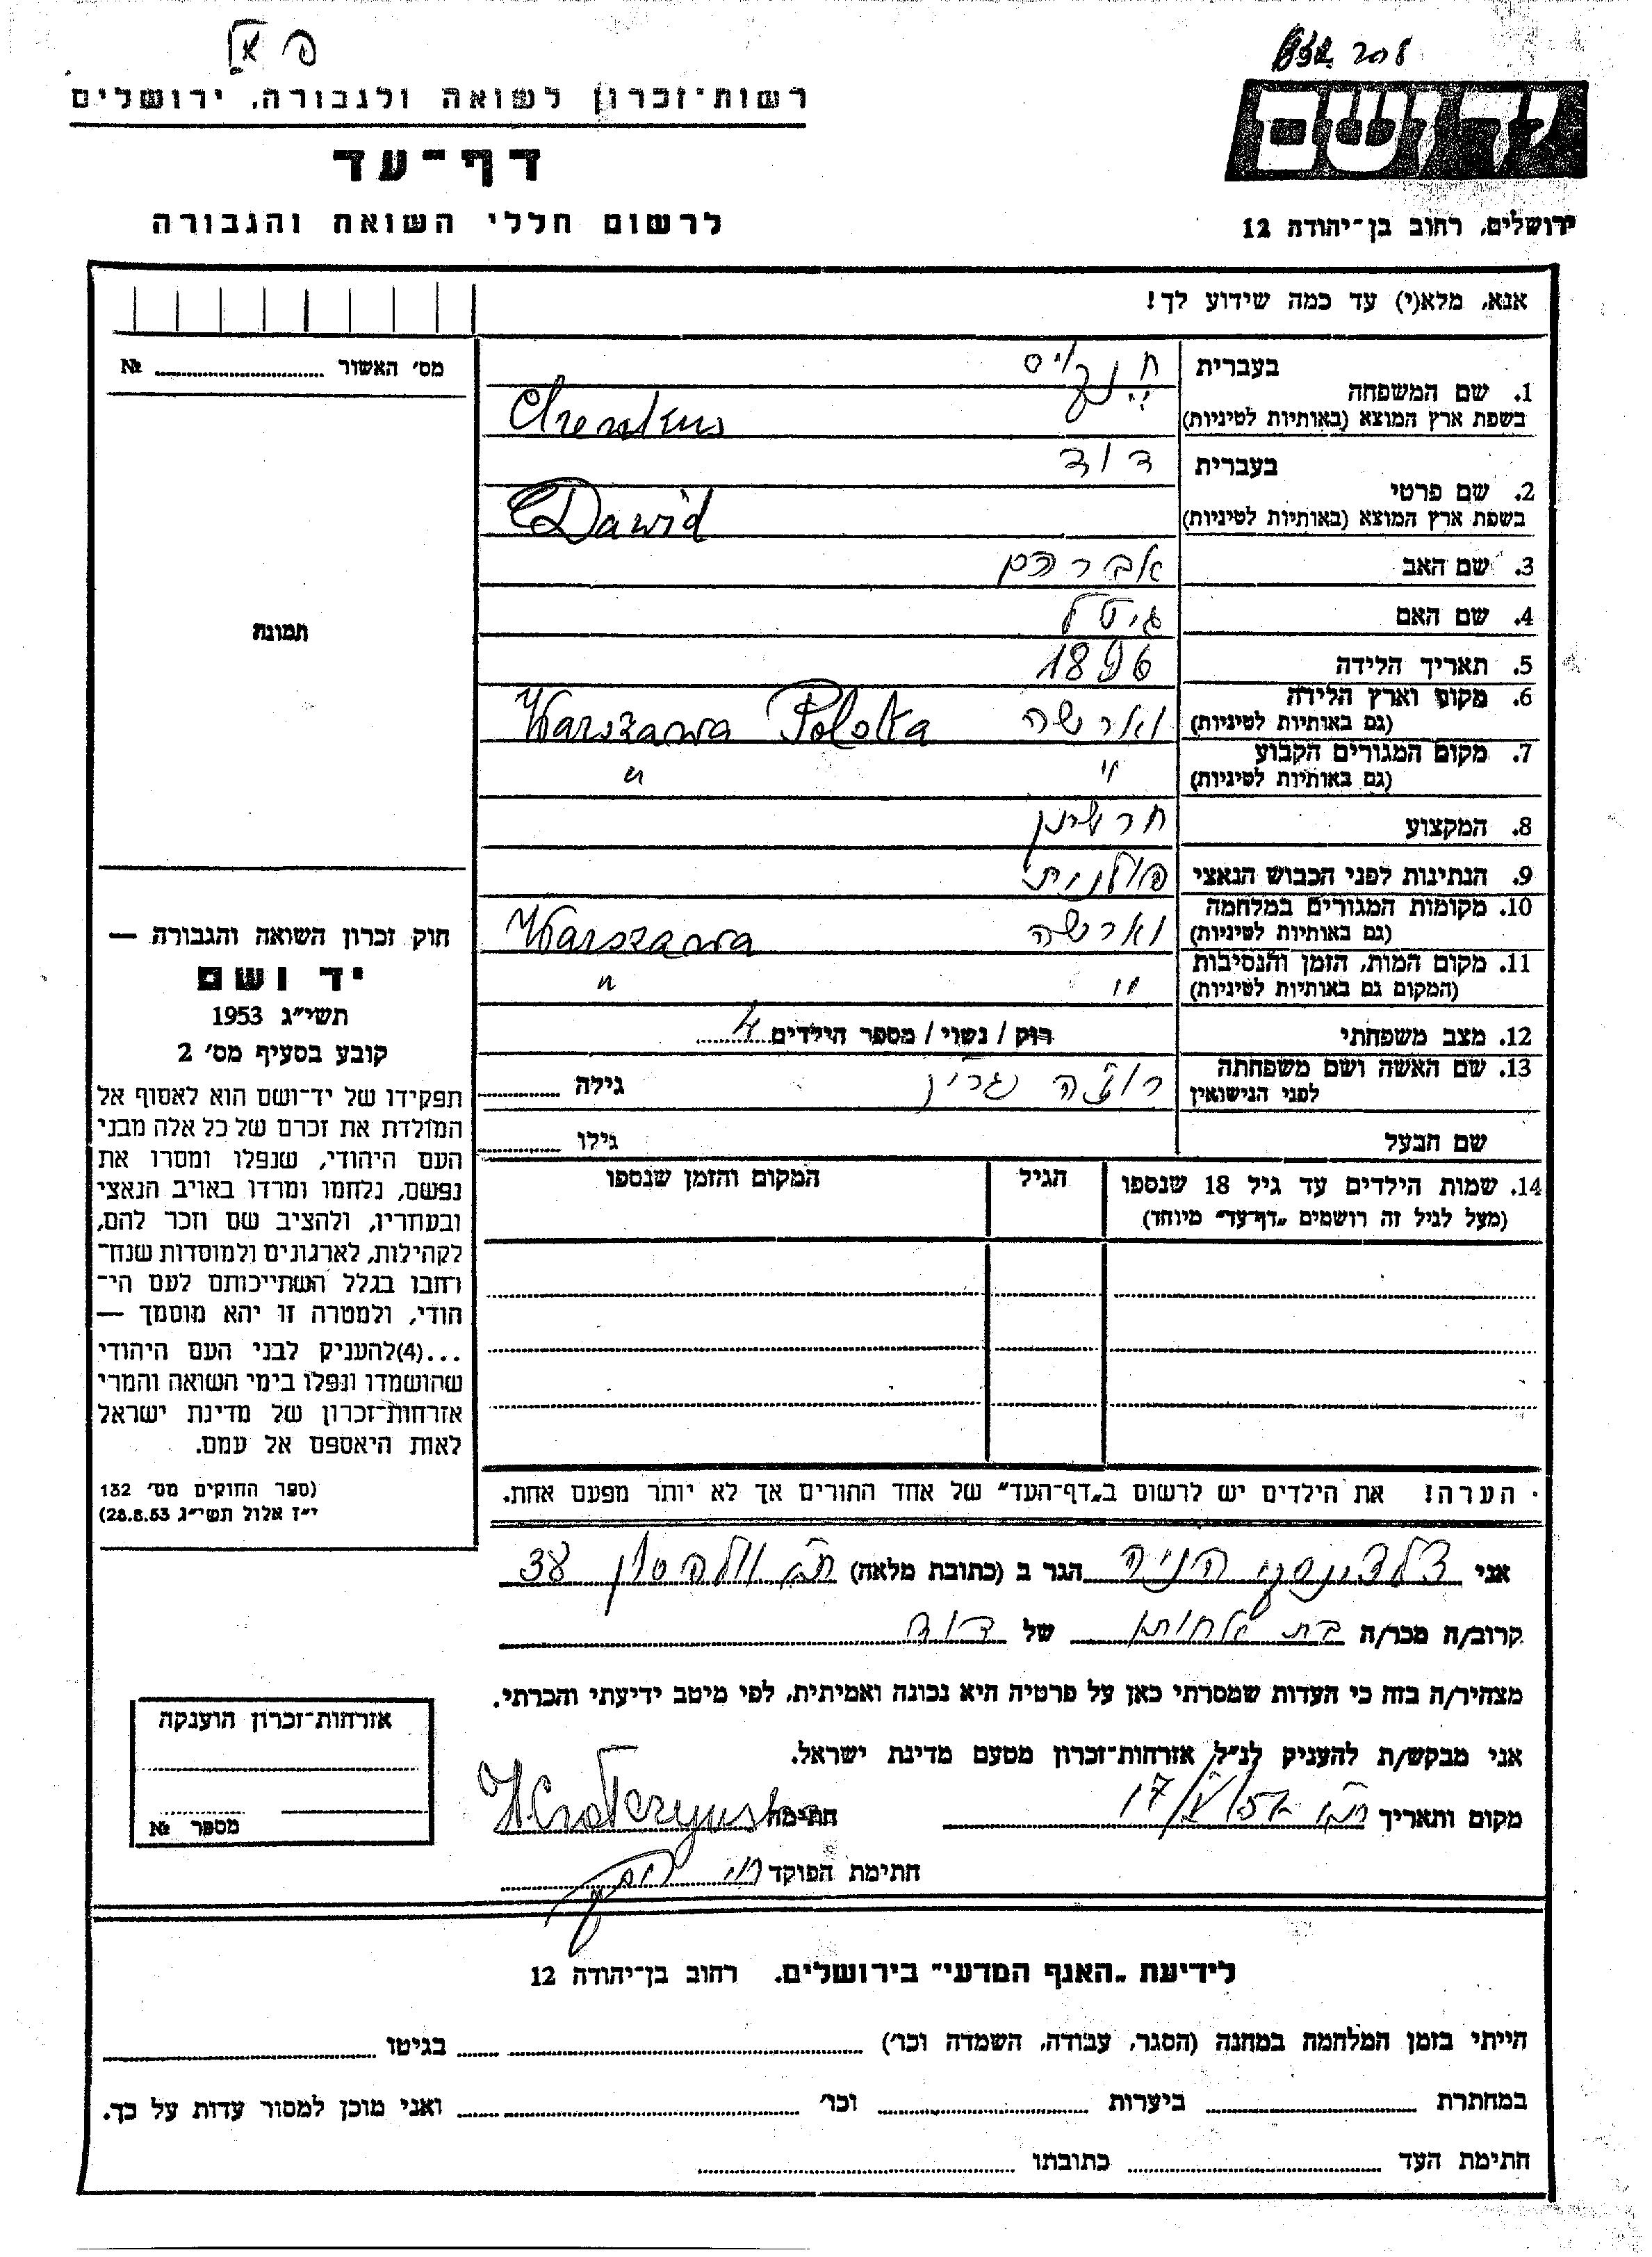 רשות־זכרון לשואה ולגבורה, ירושלים
דף־עד
לרשום חללי השואה והגבורה
יד ושם
ירושלים, רחוב בן־יהודה 12
אנא, מלא(י) עד כמה שידוע לך!
מס׳ האשור № 
תמונה
1. שם המשפחה בעברית
בשפת ארץ המוצא (באותיות לטיניות)
2. שם פרטי בעברית דוד
בשפת ארץ המוצא (באותיות לטיניות) Dawid
3. שם האב אברהם
4. שם האם גיטל
5. תאריך הלידה 1896
6. מקום וארץ הלידה
(גם באותיות לטיניות) וארשה Warszawa Polska
7. מקום המגורים הקבוע
(גם באותיות לטיניות) " "
8. המקצוע
9. הנתינות לפני הכבוש הנאצי פולנית
10. מקומות המגורים במלחמה
(גם באותיות לטיניות) וארשה Warszawa
11. מקום המות, הזמן והנסיבות
(המקום גם באותיות לטיניות) " "
12. מצב משפחתי רוק / נשוי / מספר הילדים 4
13. שם האשה ושם משפחתה
לפני הנישואין גילה
שם הבעל גילו
14. שמות הילדים עד גיל 18 שנספו
(מעל לגיל זה רושמים „דף־עד" מיוחד)
הגיל
המקום והזמן שנספו
הערה! את הילדים יש לרשום ב„דף־העד" של אחד ההורים אך לא יותר מפעם אחת.
חוק זכרון השואה והגבורה —
יד ושם
תשי״ג 1953
קובע בסעיף מס׳ 2
תפקידו של יד־ושם הוא לאסוף אל
המולדת את זכרם של כל אלה מבני
העם היהודי, שנפלו ומסרו את
נפשם, נלחמו ומרדו באויב הנאצי
ובעוזריו, ולהציב שם וזכר להם,
לקהילות, לארגונים ולמוסדות שנח־
רחבו בגלל השתייכותם לעם הי־
הודי, ולמטרה זו יהא מוסמך —
...(4)להעניק לבני העם היהודי
שהושמדו ונפלו בימי השואה והמרי
אזרחות־זכרון של מדינת ישראל
לאות היאספם אל עמם.
(ספר החוקים מס׳ 132
י״ז אלול תשי״ג 28.8.53)
אני הניה הגר ב (כתובת מלאה)
קרוב/ה מכר/ה בת אחותו של דוד
מצהיר/ה בזה כי העדות שמסרתי כאן על פרטיה היא נכונה ואמיתית, לפי מיטב ידיעתי והכרתי.
אני מבקש/ת להעניק לנ״ל אזרחות־זכרון מטעם מדינת ישראל.
מקום ותאריך חתימה
חתימת הפוקד
אזרחות־זכרון הוענקה
מספר №
לידיעת „האגף המדעי" בירושלים. רחוב בן־יהודה 12
הייתי בזמן המלחמה במחנה (הסגר, עבודה, השמדה וכו׳) בגיטו
במחתרת ביערות וכו׳ ואני מוכן למסור עדות על כך.
חתימת העד כתובתו